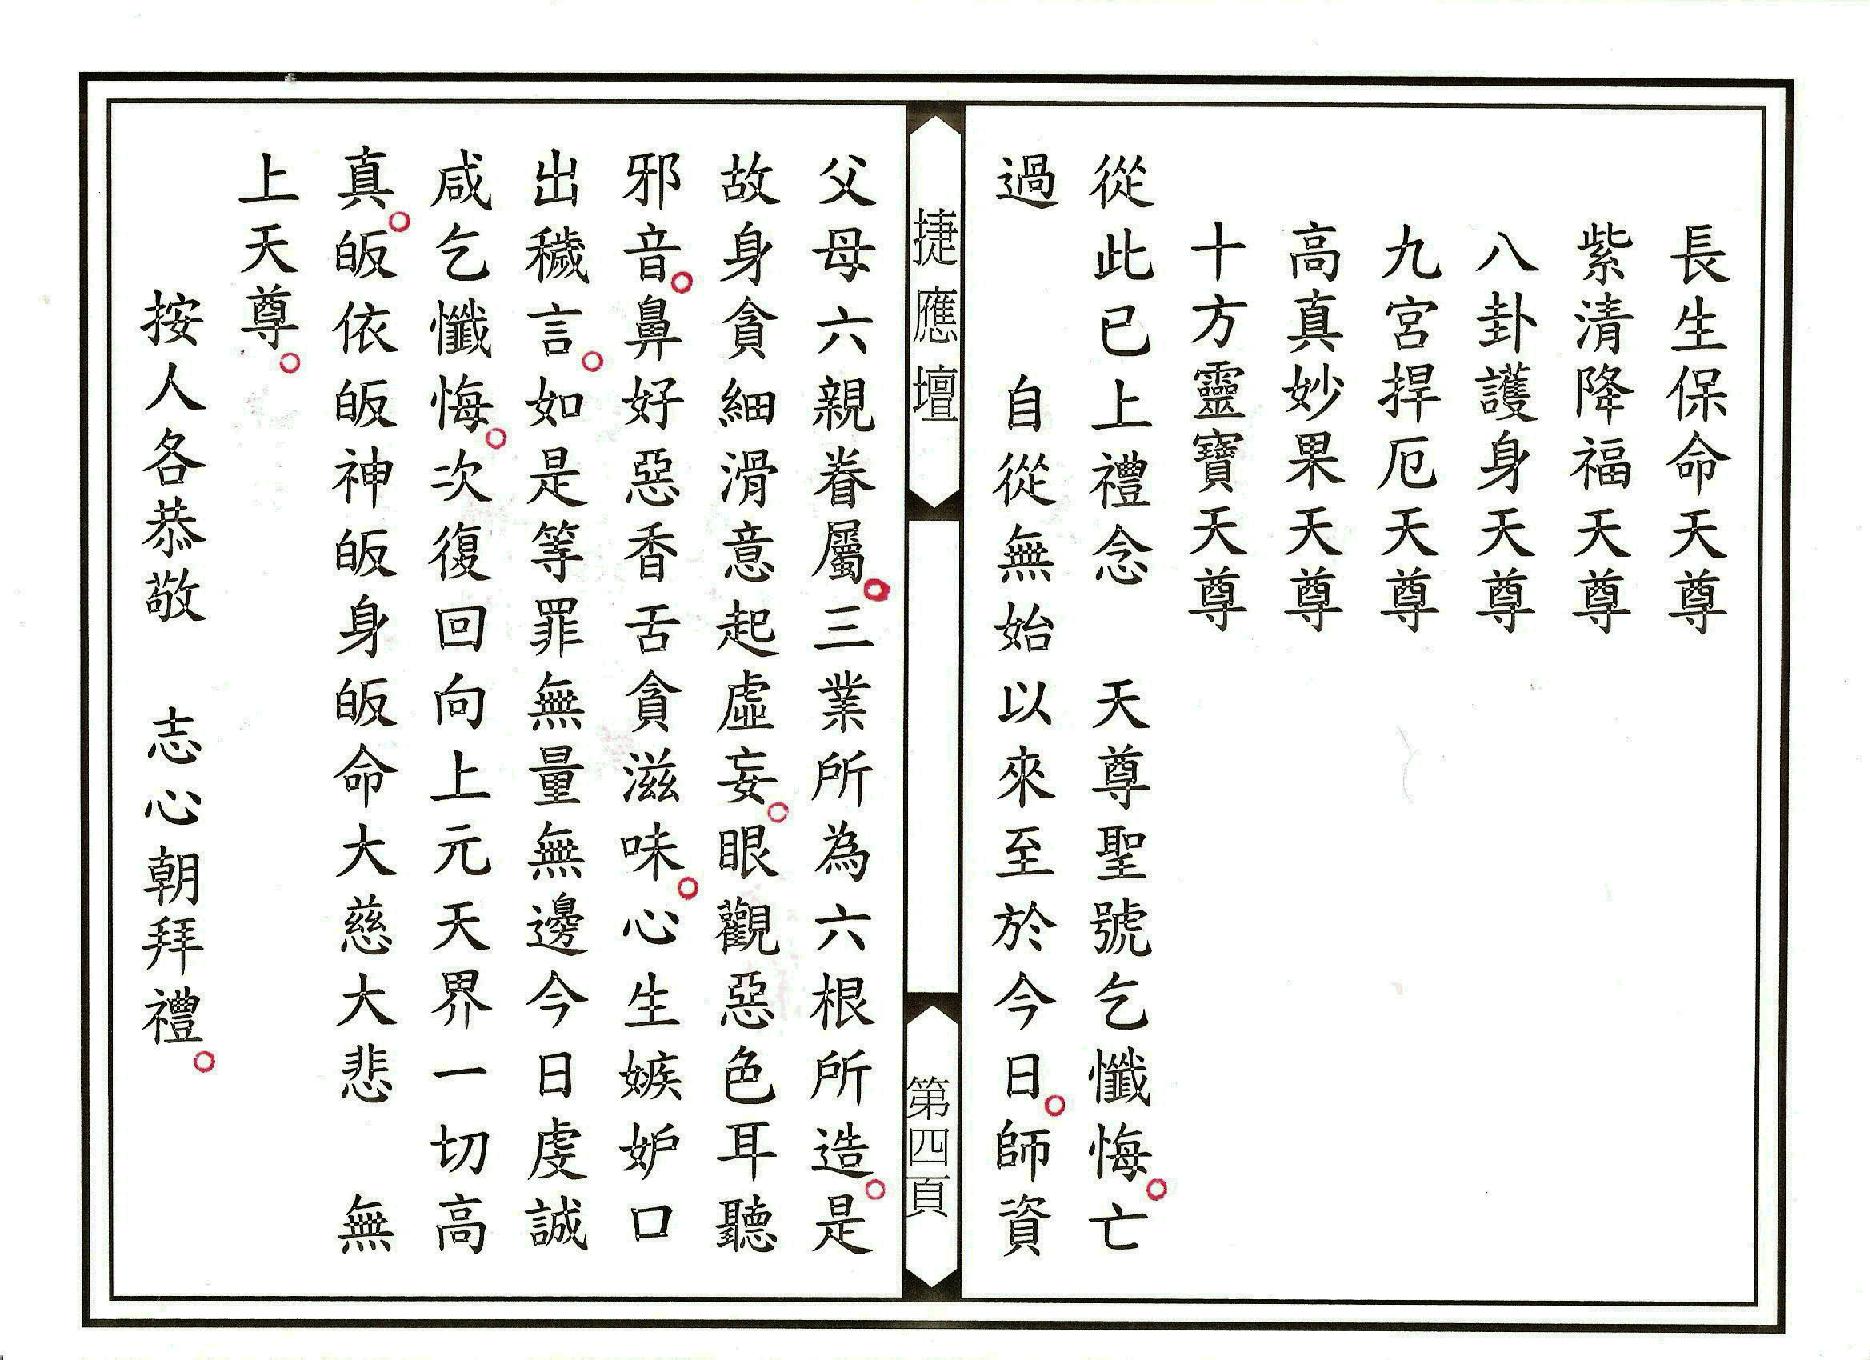 長生保命天尊
紫清降福天尊
八卦護身天尊
九宮捍厄天尊
高真妙果天尊
十方靈寶天尊
從此已上禮念　天尊聖號乞懺悔○亡
過　　自從無始以來至於今日○師資
捷應壇
第四頁
父母六親眷屬○三業所為六根所造○是
故身貪細滑意起虛妄○眼觀惡色耳聽
邪音○鼻好惡香舌貪滋味○心生嫉妒口
出穢言○如是等罪無量無邊今日虔誠
咸乞懺悔○次復回向上元天界一切高
真○皈依皈神皈身皈命大慈大悲　無
上天尊○
按人各恭敬　志心朝拜禮○